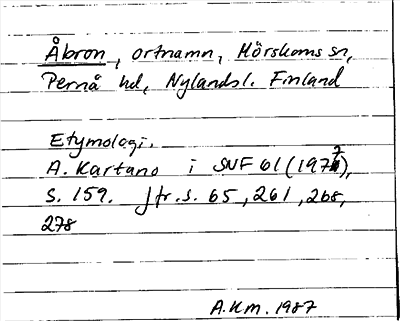 Åbron, ortnamn, Mörskoms sn,
Pernå hd, Nylandsl. Finland
Etymologi.
A. Kartano i SNF 61 (1977),
s. 159. Jfr. s. 65, 261, 268,
278
A.Km. 1987